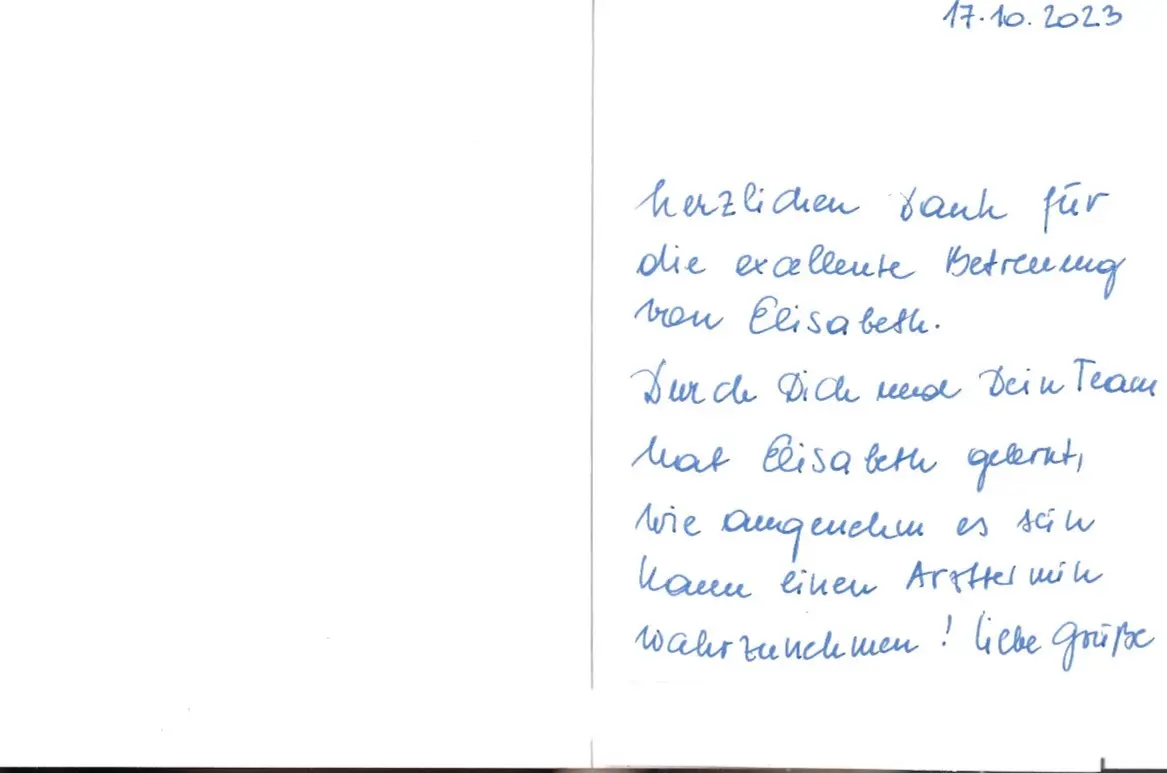 17.10.2023
herzlichen Dank für
die excellente Betreuung
von Elisabeth.
Durch Dich und Dein Team
hat Elisabeth gelernt,
wie angenehm es sein
kann einen Arzttermin
wahrzunehmen! liebe Grüße